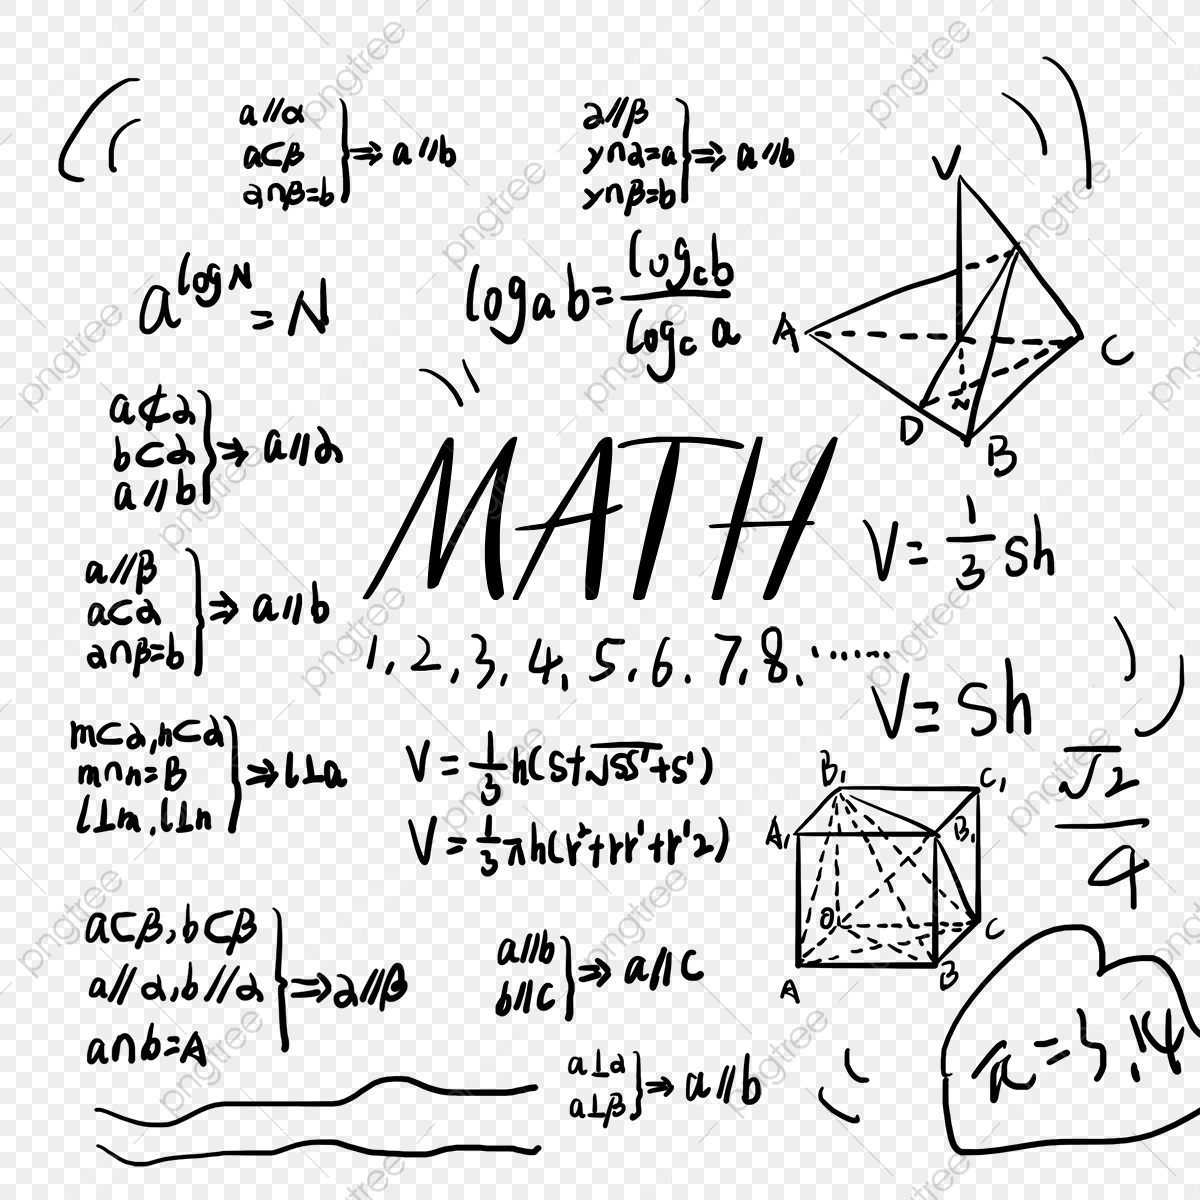 a//α
a⊂β
α∩β=b
⇒ a//b
α//β
γ∩α=a
γ∩β=b
⇒ a//b
V
a^logN = N
logab = logcb / logc a
A
C
D
N
B
a⊄α
b⊂α
a//b
⇒ a//α
MATH
V = 1/3 Sh
a//β
a⊂α
α∩β=b
⇒ a//b
1, 2, 3, 4, 5, 6. 7, 8, ······
V = Sh
m⊂α, n⊂α
m∩n=B
l⊥m, l⊥n
⇒ l⊥a
V = 1/3 h(S+√SS'+S')
V = 1/3 πh(r²+rr'+r'2)
√2 / 4
B₁
C₁
A₁
B₁
O
C
A
B
a⊂β, b⊂β
a//α, b//α
a∩b=A
⇒ α//β
a//b
b//c
⇒ a//c
a⊥α
a⊥β
⇒ a//b
a=3.14
pngtree